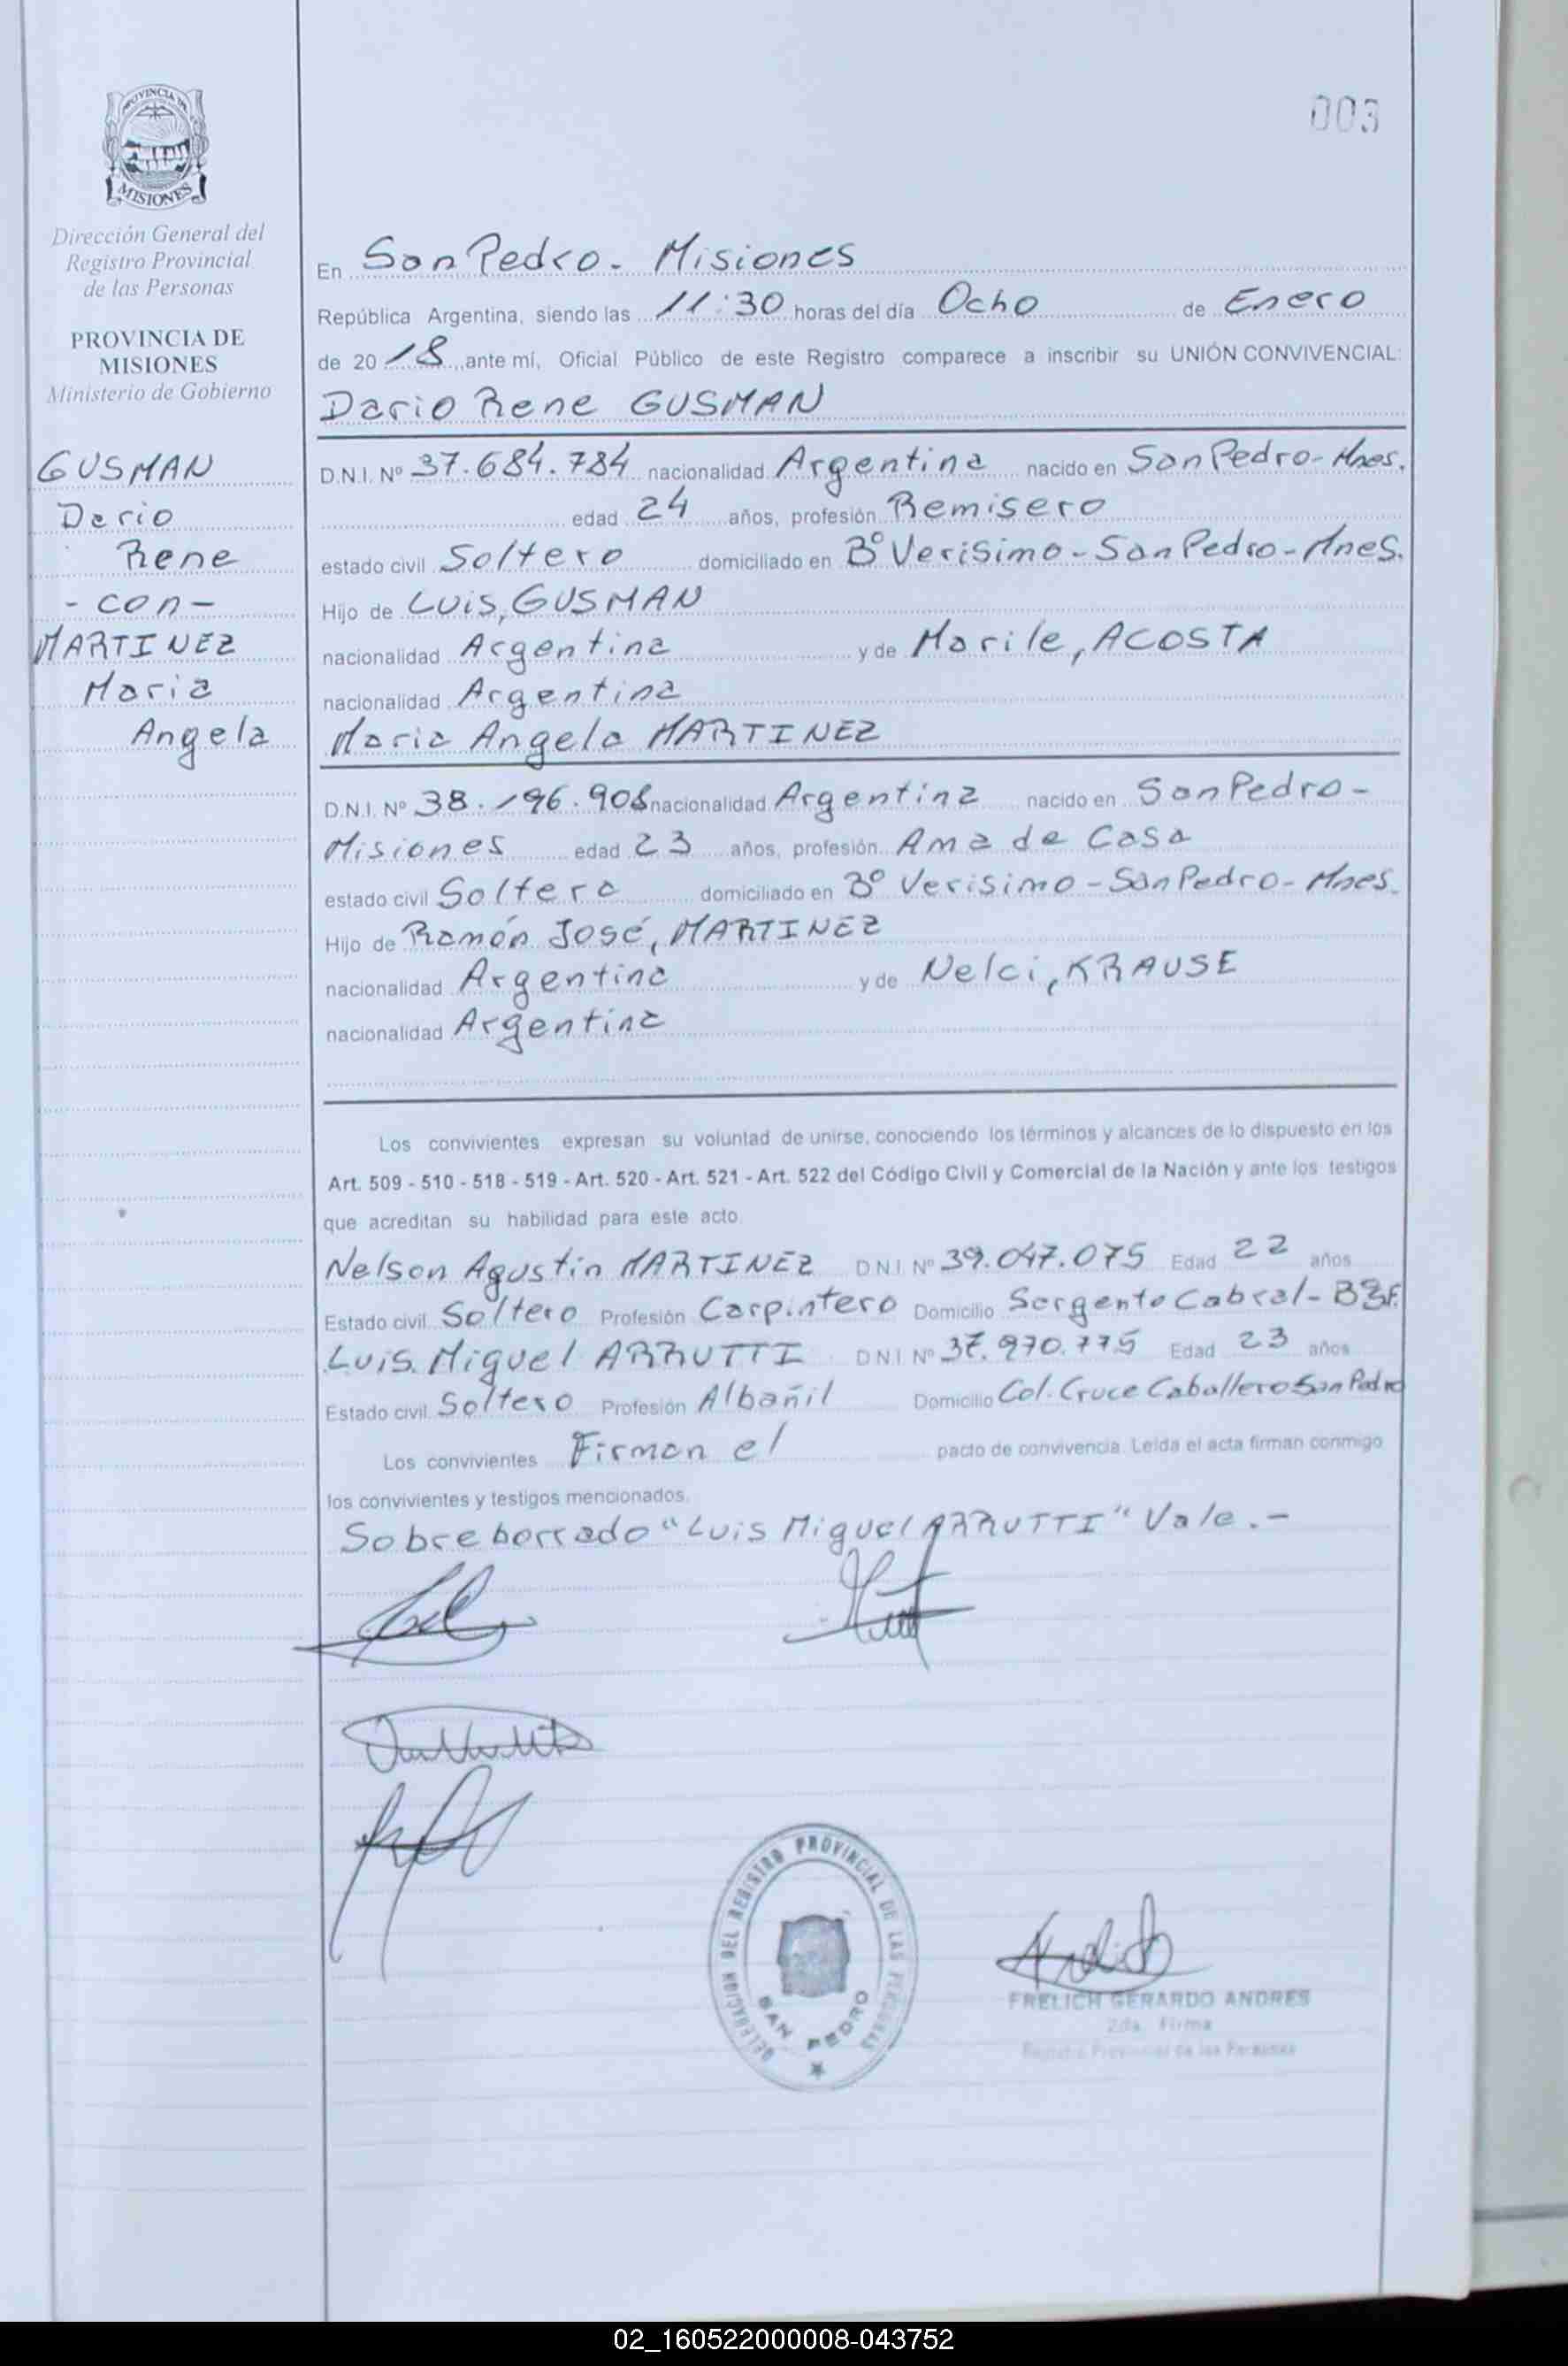 003
PROVINCIA DE
MISIONES
Dirección General del
Registro Provincial
de las Personas
PROVINCIA DE
MISIONES
Ministerio de Gobierno
GUSMAN
Dario
Rene
- con -
MARTINEZ
Maria
Angela
En San Pedro - Misiones
República Argentina, siendo las 11:30 horas del día Ocho de Enero
de 20 18, ante mí, Oficial Público de este Registro comparece a inscribir su UNIÓN CONVIVENCIAL:
Dario Rene GUSMAN
D.N.I. Nº 37.684.784 nacionalidad Argentina nacido en San Pedro - Mnes.
edad 24 años, profesión Remisero
estado civil Soltero domiciliado en Bº Verisimo - San Pedro - Mnes.
Hijo de Luis, GUSMAN
nacionalidad Argentina y de Marile, ACOSTA
nacionalidad Argentina
Maria Angela MARTINEZ
D.N.I. Nº 38.196.908 nacionalidad Argentina nacido en San Pedro -
Misiones edad 23 años, profesión Ama de Casa
estado civil Soltera domiciliado en Bº Verisimo - San Pedro - Mnes.
Hijo de Ramón José, MARTINEZ
nacionalidad Argentina y de Nelci, KRAUSE
nacionalidad Argentina
Los convivientes expresan su voluntad de unirse, conociendo los términos y alcances de lo dispuesto en los
Art. 509 - 510 - 518 - 519 - Art. 520 - Art. 521 - Art. 522 del Código Civil y Comercial de la Nación y ante los testigos
que acreditan su habilidad para este acto.
Nelson Agustin MARTINEZ D.N.I. Nº 39.047.075 Edad 22 años
Estado civil Soltero Profesión Carpintero Domicilio Sargento Cabral -
Luis Miguel ARRUTTI D.N.I. Nº 37.970.775 Edad 23 años
Estado civil Soltero Profesión Albañil Domicilio Col. Cruce Caballero San Pedro
Los convivientes Firman el pacto de convivencia. Leída el acta firman conmigo
los convivientes y testigos mencionados.
Sobre borrado "Luis Miguel ARRUTTI" Vale.-
DELEGACION DEL REGISTRO PROVINCIAL DE LAS PERSONAS
SAN PEDRO
FRELICH GERARDO ANDRES
2da. Firma
Registro Provincial de las Personas
02_160522000008-043752